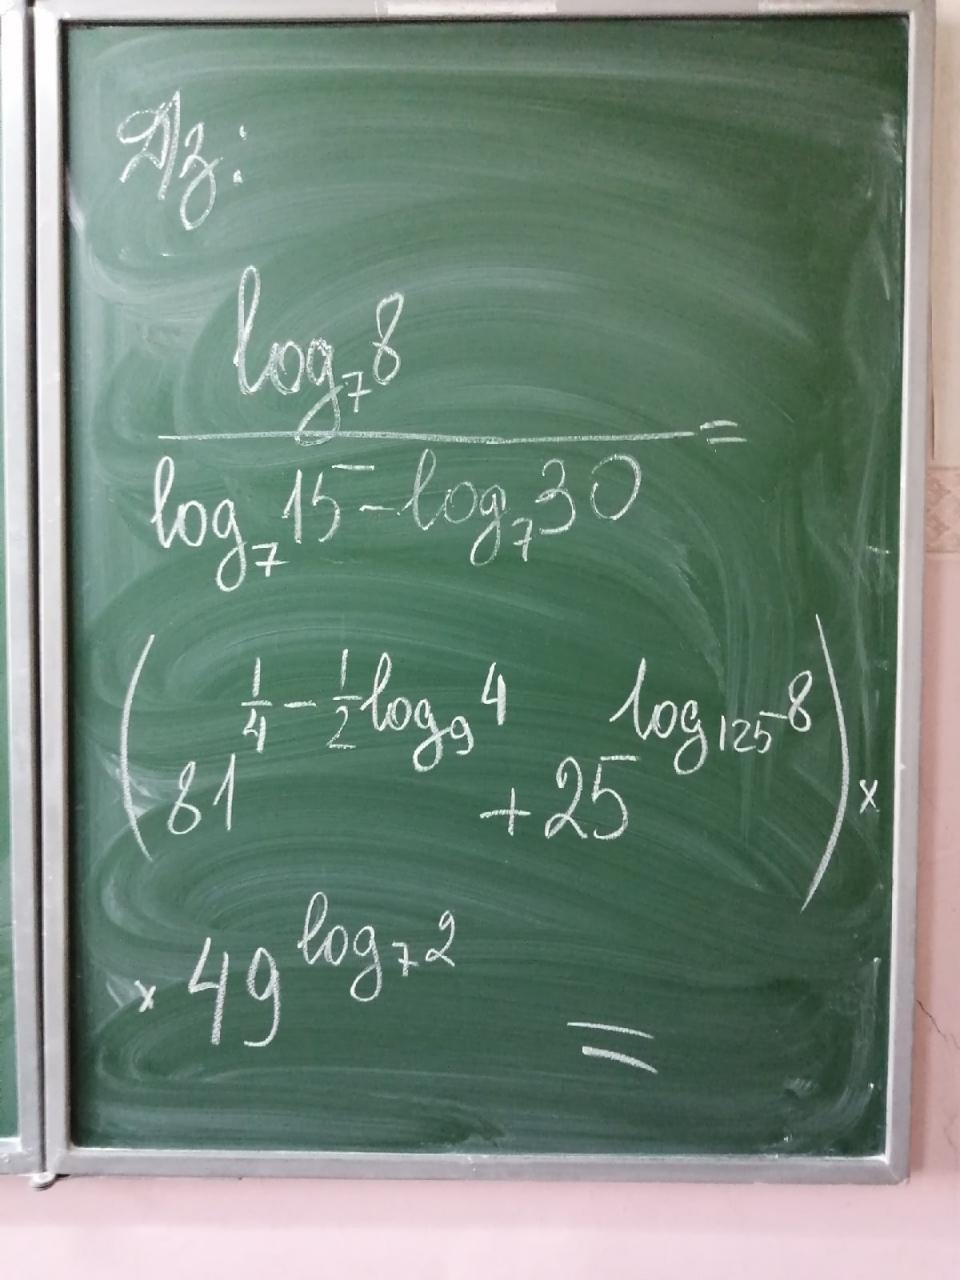 Дз:
log₇8
log₇15 - log₇30 =
(81^(1/4 - 1/2 log₉4) + 25^(log₁₂₅8)) ×
× 49^(log₇2) =